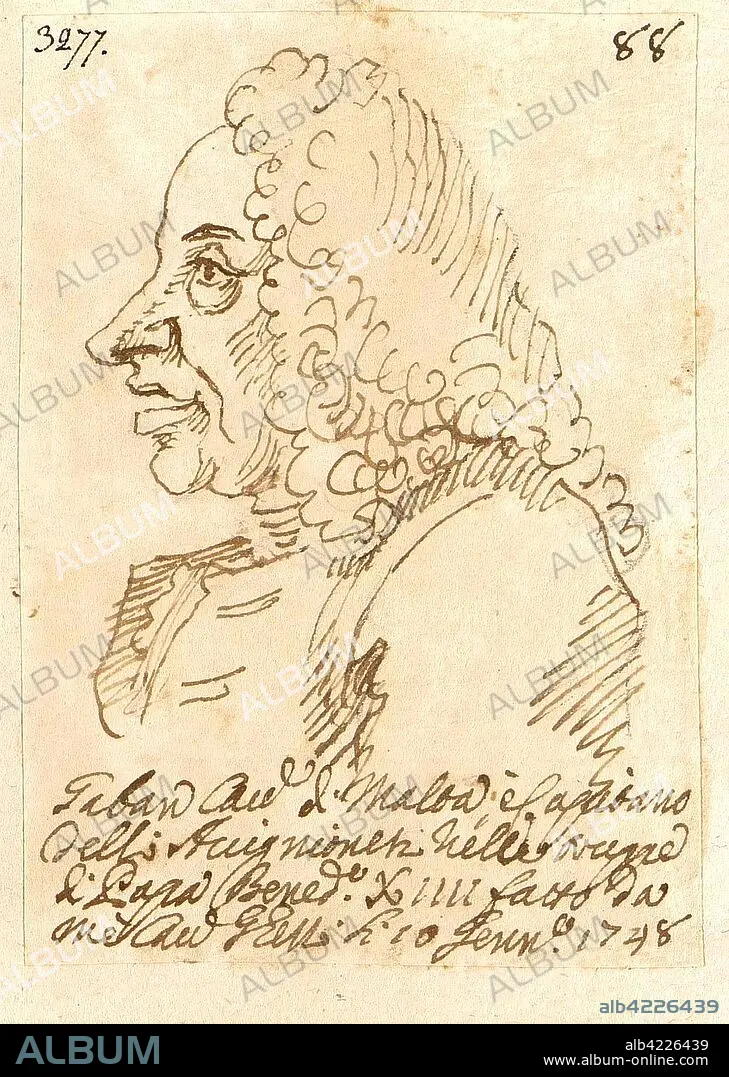 3277.
88
Taban Cavᵉ di Malta, e Capitano
delli Avignionesi nelle truppe
di Papa Benedᵒ. XIIII fatto da
me Cavᵉ Ghezzi li 10 Gennᵒ. 1748
ALBUM
alb4226439
ALBUM
alb4226439
www.album-online.com